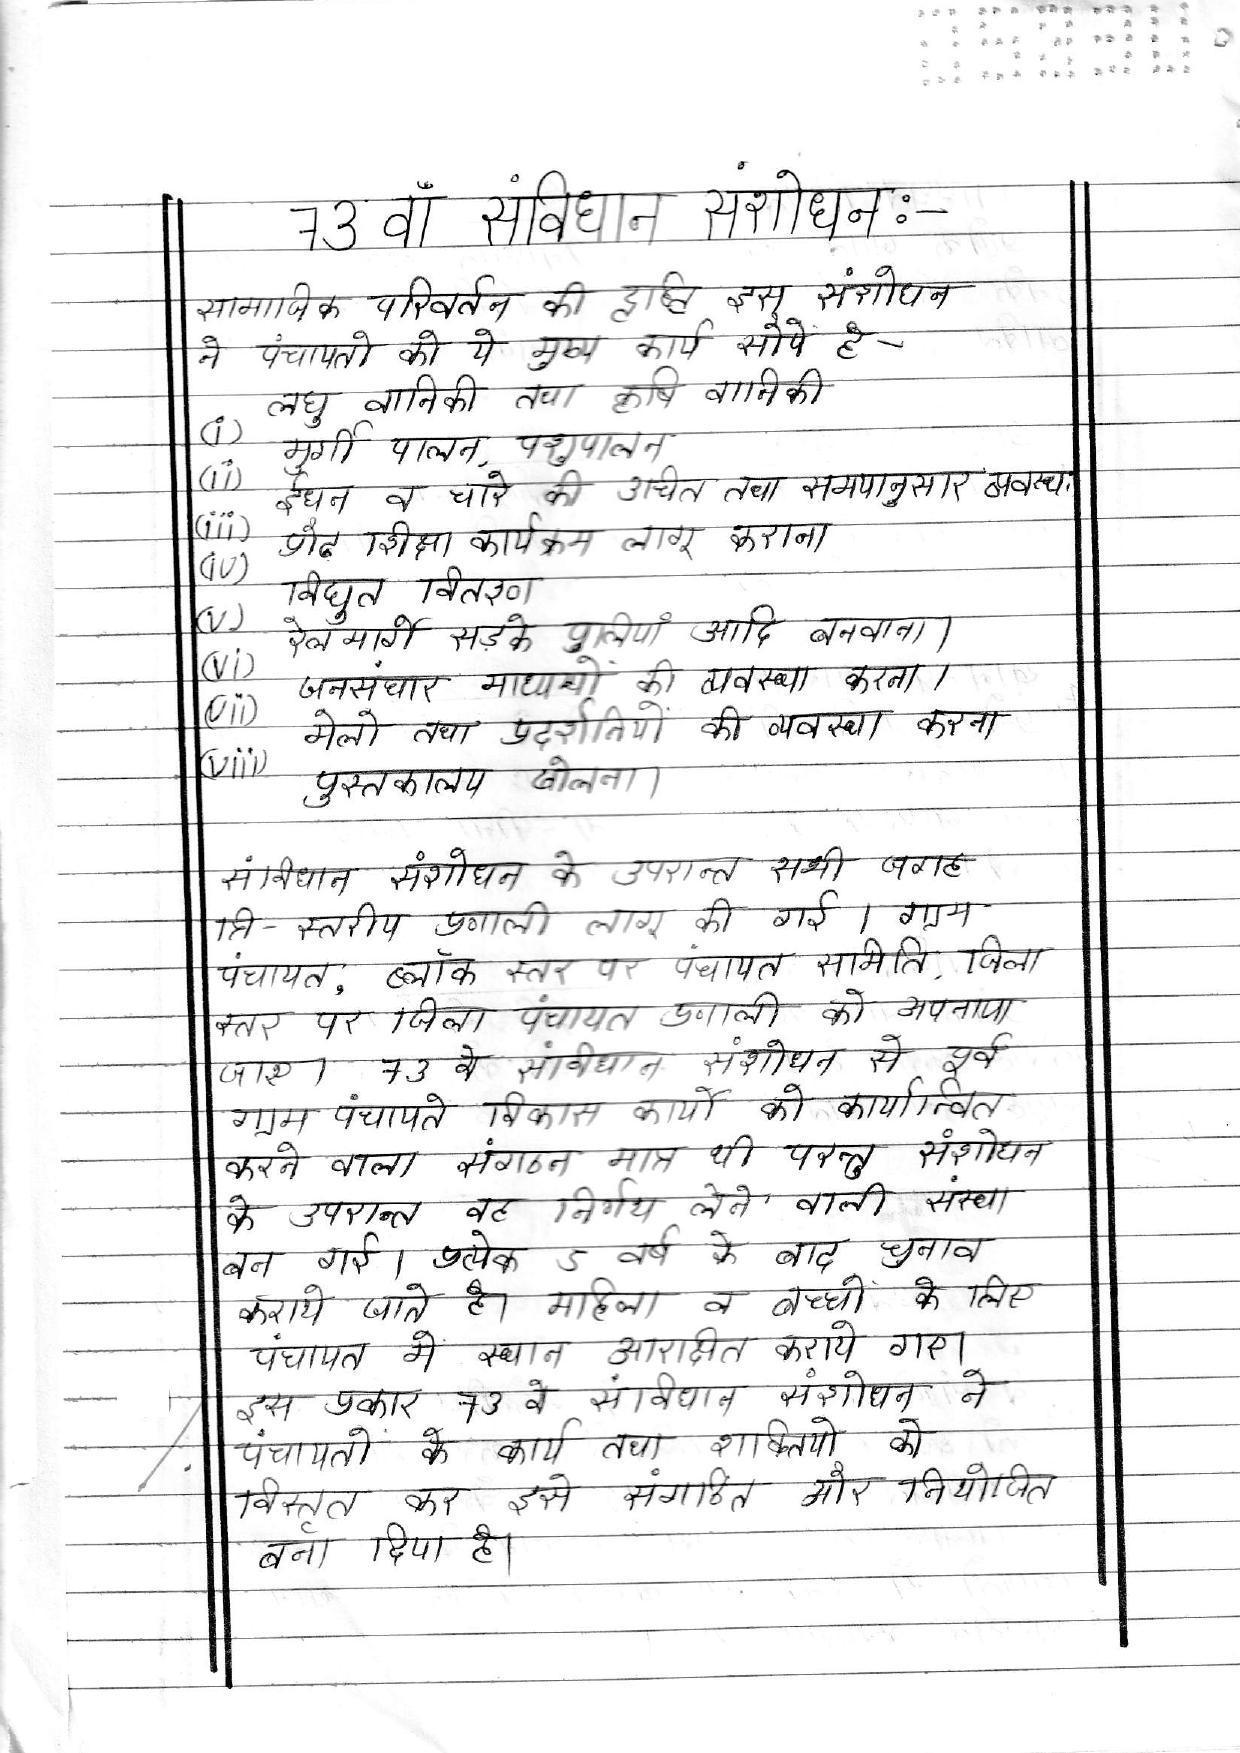 73 वाँ संविधान संशोधन:-
सामाजिक परिवर्तन की दृष्टि इस संशोधन
ने पंचायतो को ये मुख्य कार्य सोपें है -
(i) लघु वानिकी तथा कृषि वानिकी
(ii) मुर्गी पालन, पशुपालन
(iii) ईधन व चारे की उचित तथा समयानुसार व्यवस्था
(iv) प्रौढ शिक्षा कार्यक्रम लागू कराना
(v) विघुत वितरण
(vi) रेलमार्ग सड़के पुलियाँ आदि बनवाना।
(vii) जनसंचार माध्यमों की व्यवस्था करना।
(viii) मेलो तथा प्रदर्शनियों की व्यवस्था करना
पुस्तकालय खोलना।
संविधान संशोधन के उपरान्त सभी जगह
त्रि-स्तरीय प्रणाली लागू की गई। ग्राम
पंचायत, ब्लॉक स्तर पर पंचायत समिति, जिला
स्तर पर जिला पंचायत प्रणाली को अपनाया
जाए। 73 वे संविधान संशोधन से पूर्व
ग्राम पंचायते विकास कार्यों को कार्यान्वित
करने वाला संगठन मात्र थी परन्तु संशोधन
के उपरान्त वह निर्णय लेने वाली संस्था
बन गई। प्रत्येक 5 वर्ष के बाद चुनाव
कराये जाते है। महिला व बच्चों के लिए
पंचायत में स्थान आरक्षित कराये गए।
इस प्रकार 73 वे संविधान संशोधन ने
पंचायतों के कार्य तथा शक्तियो को
विस्तृत कर इसे संगठित और नियोजित
बना दिया है।